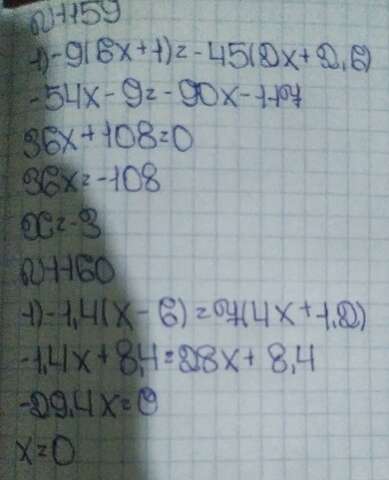 №1159
1) -9(6x+1)=-45(2x+2,6)
-54x-9=-90x-117
36x+108=0
36x=-108
x=-3
№1160
1) -1,4(x-6)=7(4x+1,2)
-1,4x+8,4=28x+8,4
-29,4x=0
x=0